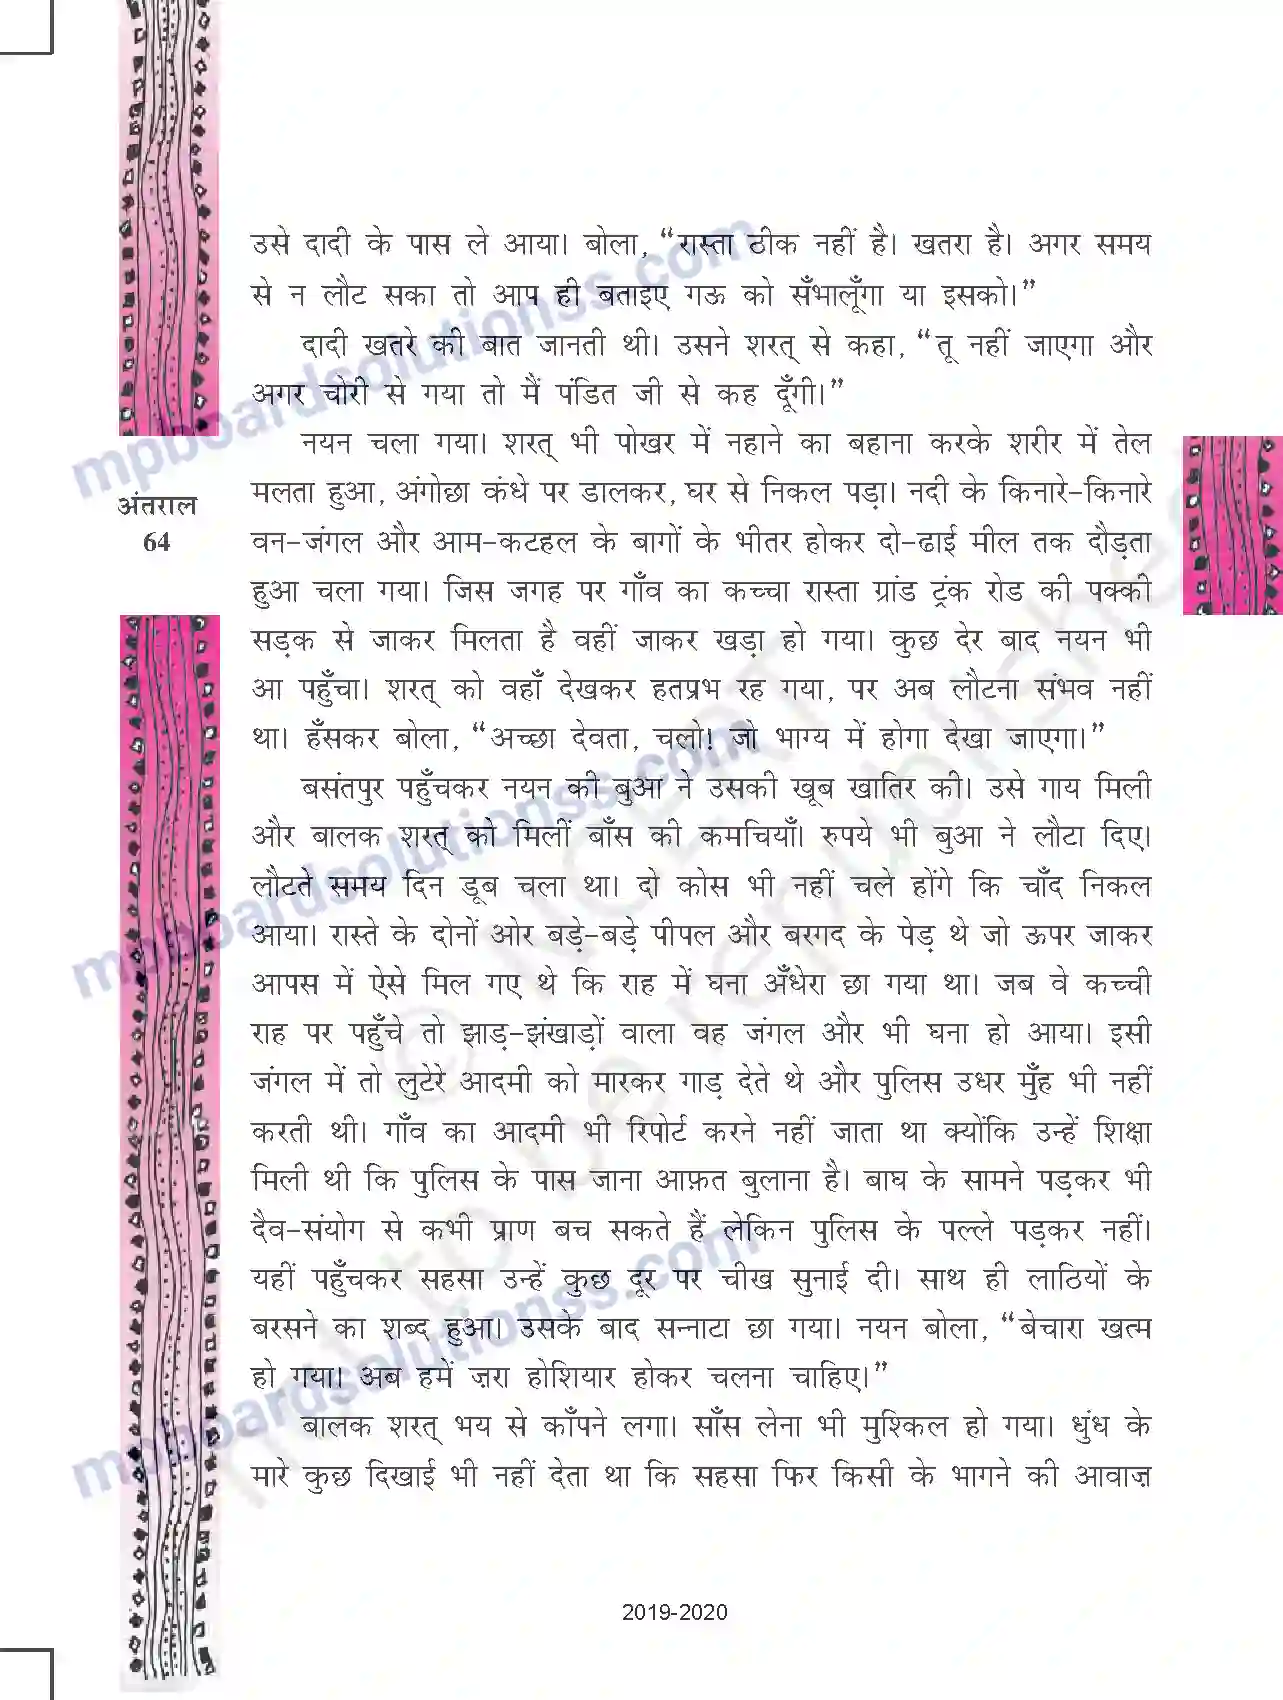 उसे दादी के पास ले आया। बोला, “रास्ता ठीक नहीं है। खतरा है। अगर समय
से न लौट सका तो आप ही बताइए गऊ को सँभालूँगा या इसको।”
दादी खतरे की बात जानती थी। उसने शरत् से कहा, “तू नहीं जाएगा और
अगर चोरी से गया तो मैं पंडित जी से कह दूँगी।”
नयन चला गया। शरत् भी पोखर में नहाने का बहाना करके शरीर में तेल
मलता हुआ, अंगोछा कंधे पर डालकर, घर से निकल पड़ा। नदी के किनारे-किनारे
अंतराल
64
वन-जंगल और आम-कटहल के बागों के भीतर होकर दो-ढाई मील तक दौड़ता
हुआ चला गया। जिस जगह पर गाँव का कच्चा रास्ता ग्रांड ट्रंक रोड की पक्की
सड़क से जाकर मिलता है वहीं जाकर खड़ा हो गया। कुछ देर बाद नयन भी
आ पहुँचा। शरत् को वहाँ देखकर हतप्रभ रह गया, पर अब लौटना संभव नहीं
था। हँसकर बोला, “अच्छा देवता, चलो! जो भाग्य में होगा देखा जाएगा।”
बसंतपुर पहुँचकर नयन की बुआ ने उसकी खूब खातिर की। उसे गाय मिली
और बालक शरत् को मिलीं बाँस की कमचियाँ। रुपये भी बुआ ने लौटा दिए।
लौटते समय दिन डूब चला था। दो कोस भी नहीं चले होंगे कि चाँद निकल
आया। रास्ते के दोनों ओर बड़े-बड़े पीपल और बरगद के पेड़ थे जो ऊपर जाकर
आपस में ऐसे मिल गए थे कि राह में घना अँधेरा छा गया था। जब वे कच्ची
राह पर पहुँचे तो झाड़-झंखाड़ों वाला वह जंगल और भी घना हो आया। इसी
जंगल में तो लुटेरे आदमी को मारकर गाड़ देते थे और पुलिस उधर मुँह भी नहीं
करती थी। गाँव का आदमी भी रिपोर्ट करने नहीं जाता था क्योंकि उन्हें शिक्षा
मिली थी कि पुलिस के पास जाना आफ़त बुलाना है। बाघ के सामने पड़कर भी
दैव-संयोग से कभी प्राण बच सकते हैं लेकिन पुलिस के पल्ले पड़कर नहीं।
यहीं पहुँचकर सहसा उन्हें कुछ दूर पर चीख सुनाई दी। साथ ही लाठियों के
बरसने का शब्द हुआ। उसके बाद सन्नाटा छा गया। नयन बोला, “बेचारा खत्म
हो गया। अब हमें ज़रा होशियार होकर चलना चाहिए।”
बालक शरत् भय से काँपने लगा। साँस लेना भी मुश्किल हो गया। धुंध के
मारे कुछ दिखाई भी नहीं देता था कि सहसा फिर किसी के भागने की आवाज़
2019-2020
mpboardsolutionss.com
mpboardsolutionss.com
mpboardsolutionss.com
© NCERT
not to be republished